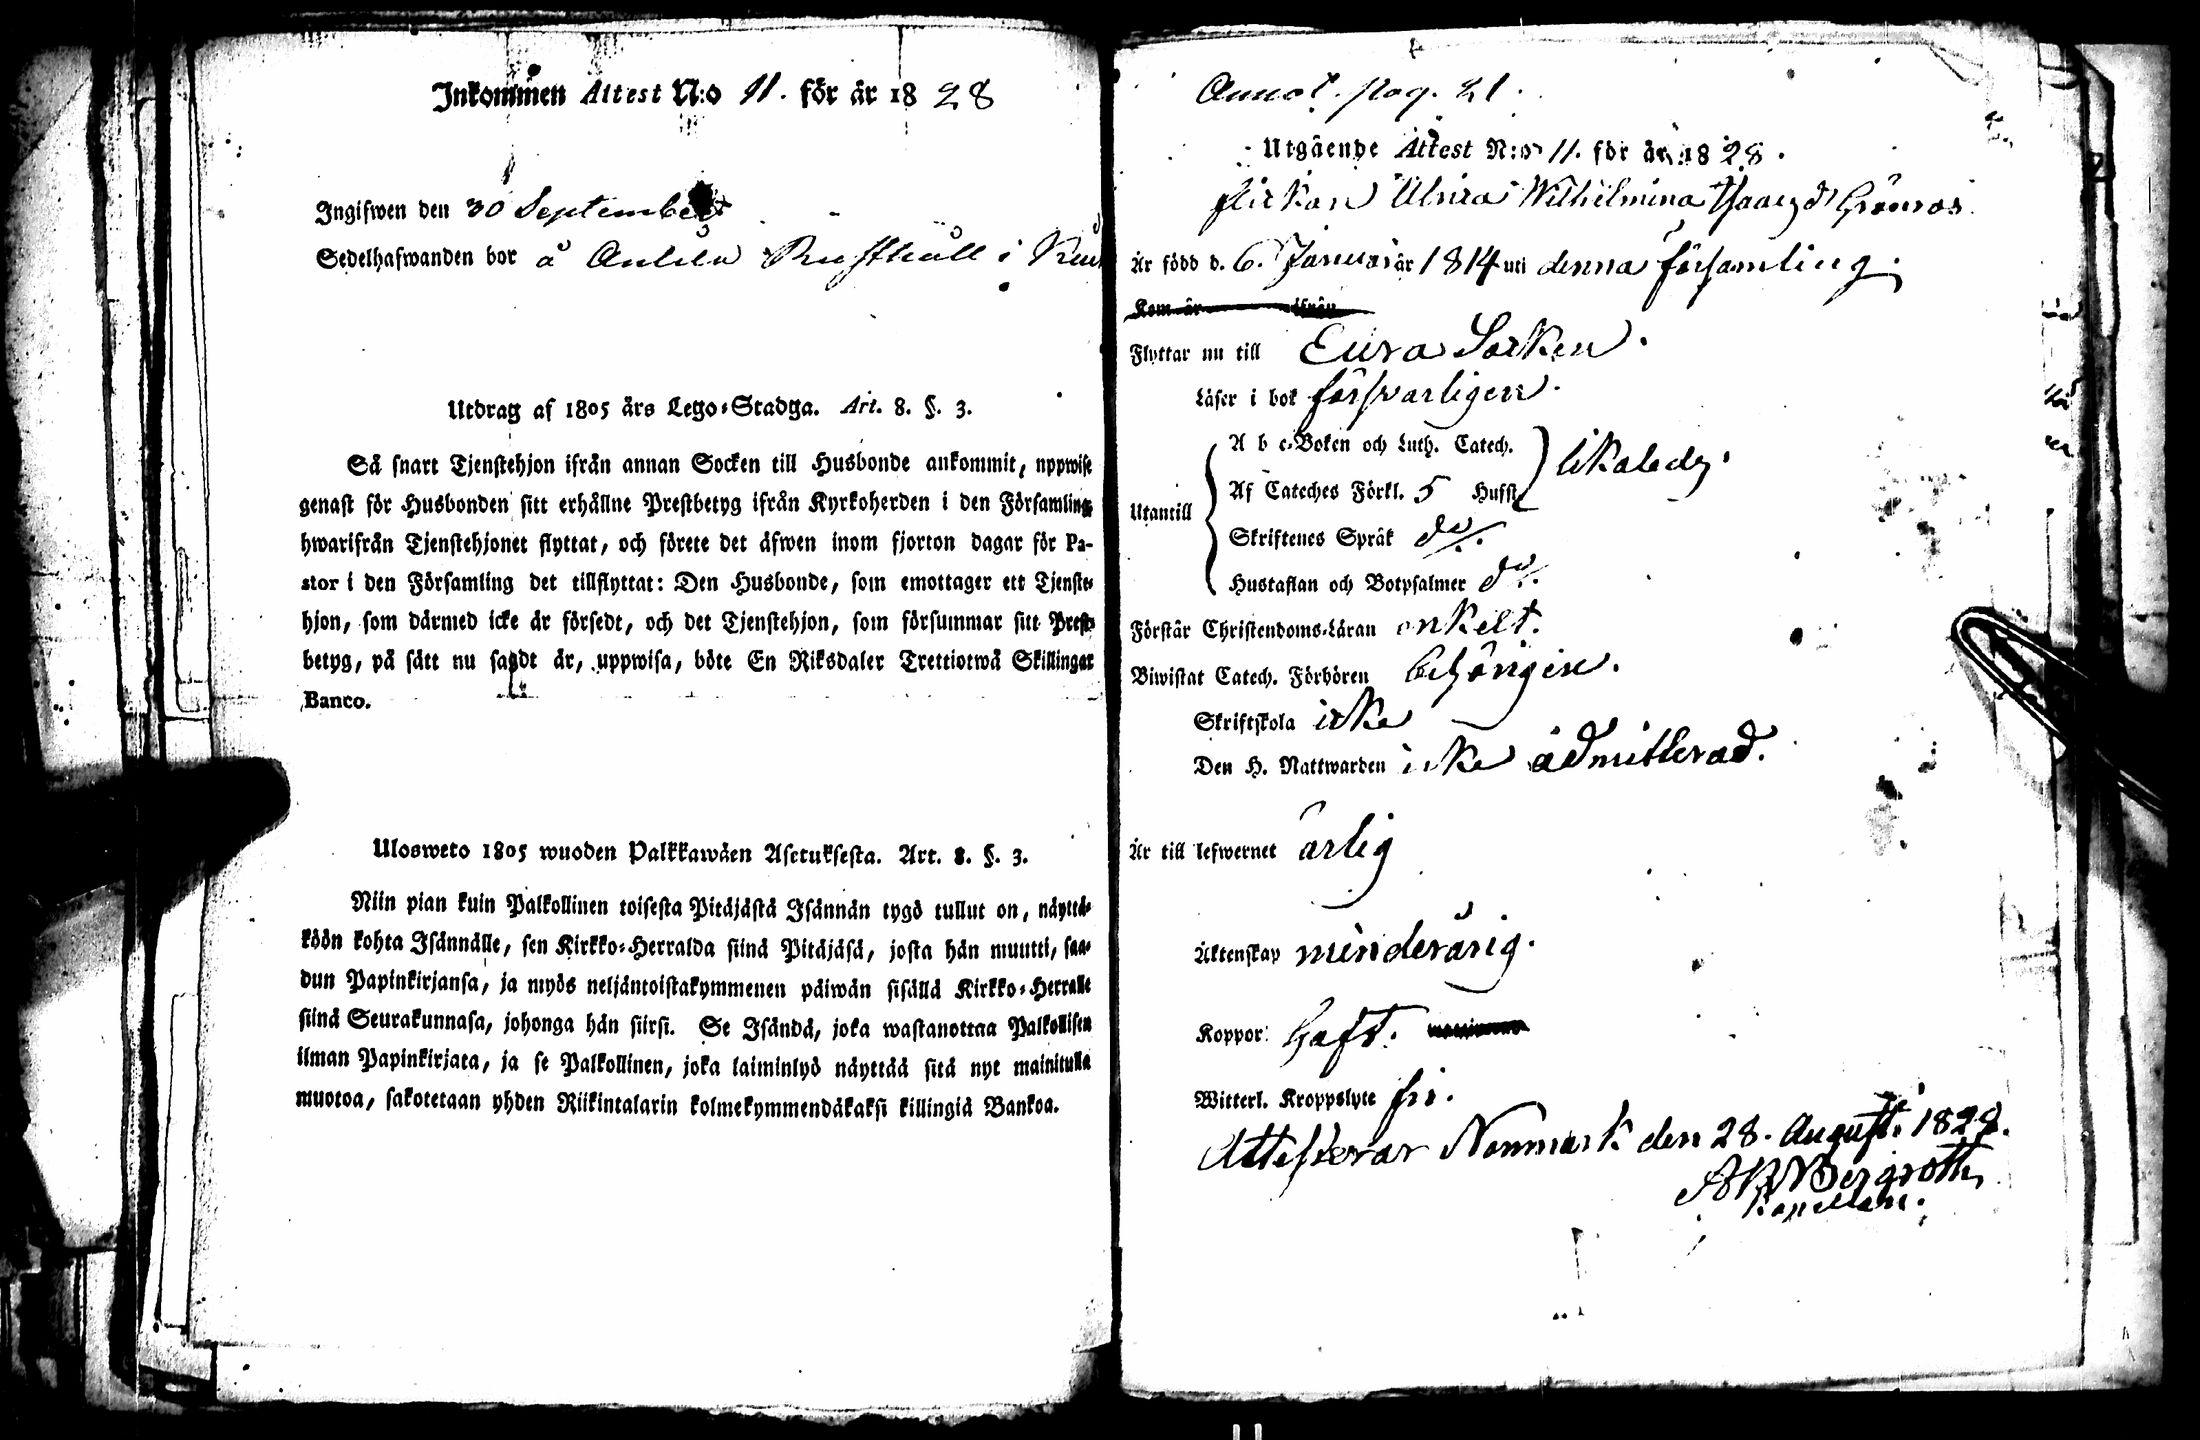 Inkommen Attest N:o 11. för år 1828
Ingifwen den 30 September
Sedelhafwanden bor å Anttila Rusthåll i
Utdrag af 1805 års Lego-Stadga. Art. 8. §. 3.
Så snart Tjenstehjon ifrån annan Socken till Husbonde ankommit, uppwise
genast för Husbonden sitt erhållne Prestbetyg ifrån Kyrkoherden i den Församling
hwarifrån Tjenstehjonet flyttat, och förete det äfwen inom fjorton dagar för Pa-
stor i den Församling det tillflyttat: Den Husbonde, som emottager ett Tjenste-
hjon, som därmed icke är försedt, och det Tjenstehjon, som försummar sitt Prest-
betyg, på sätt nu sagdt är, uppwisa, böte En Riksdaler Trettiotwå Skillingar
Banco.
Ulosweto 1805 wuoden Palkkawäen Asetuksesta. Art. 8. §. 3.
Niin pian kuin Palkollinen toisesta Pitäjästä Isännän tygö tullut on, näyttä-
köön kohta Isännälle, sen Kirkko-Herralda siinä Pitäjäsä, josta hän muutti, saa-
dun Papinkirjansa, ja myös neljäntoistakymmenen päiwän sisällä Kirkko-Herralle
siinä Seurakunnasa, johonga hän siirsi. Se Isändä, joka wastanottaa Palkollisen
ilman Papinkirjata, ja se Palkollinen, joka laiminlyö näyttää sitä nyt mainitulla
muotoa, sakotetaan yhden Riikintalarin kolmekymmendäkaksi killingiä Bankoa.
Annot. pag. 21.
Utgående Attest N:o 11. för år 1828.
flickan Ulrica Wilhelmina Grönroos
Är född d. 6. Januari år 1814 uti denna församling.
Kom år ifrån
Flyttar nu till Eura Socken.
Läser i bok försvarligen.
Utantill
A b c-Boken och Luth. Catech.
Af Cateches Förkl. 5 Hufst. likaledes.
Skriftenes Språk do.
Hustaflan och Botpsalmer do.
Förstår Christendoms-Läran enkelt.
Biwistat Catech. Förhören behörigen.
Skriftskola icke
Den H. Nattwarden icke admitterad.
Är till lefwernet ärlig
Äktenskap minderårig.
Koppor: haft.
Witterl. Kroppslyte fri.
Attesterar Nommark den 28. Augusti 1828.
Bergroth
Kapellan.